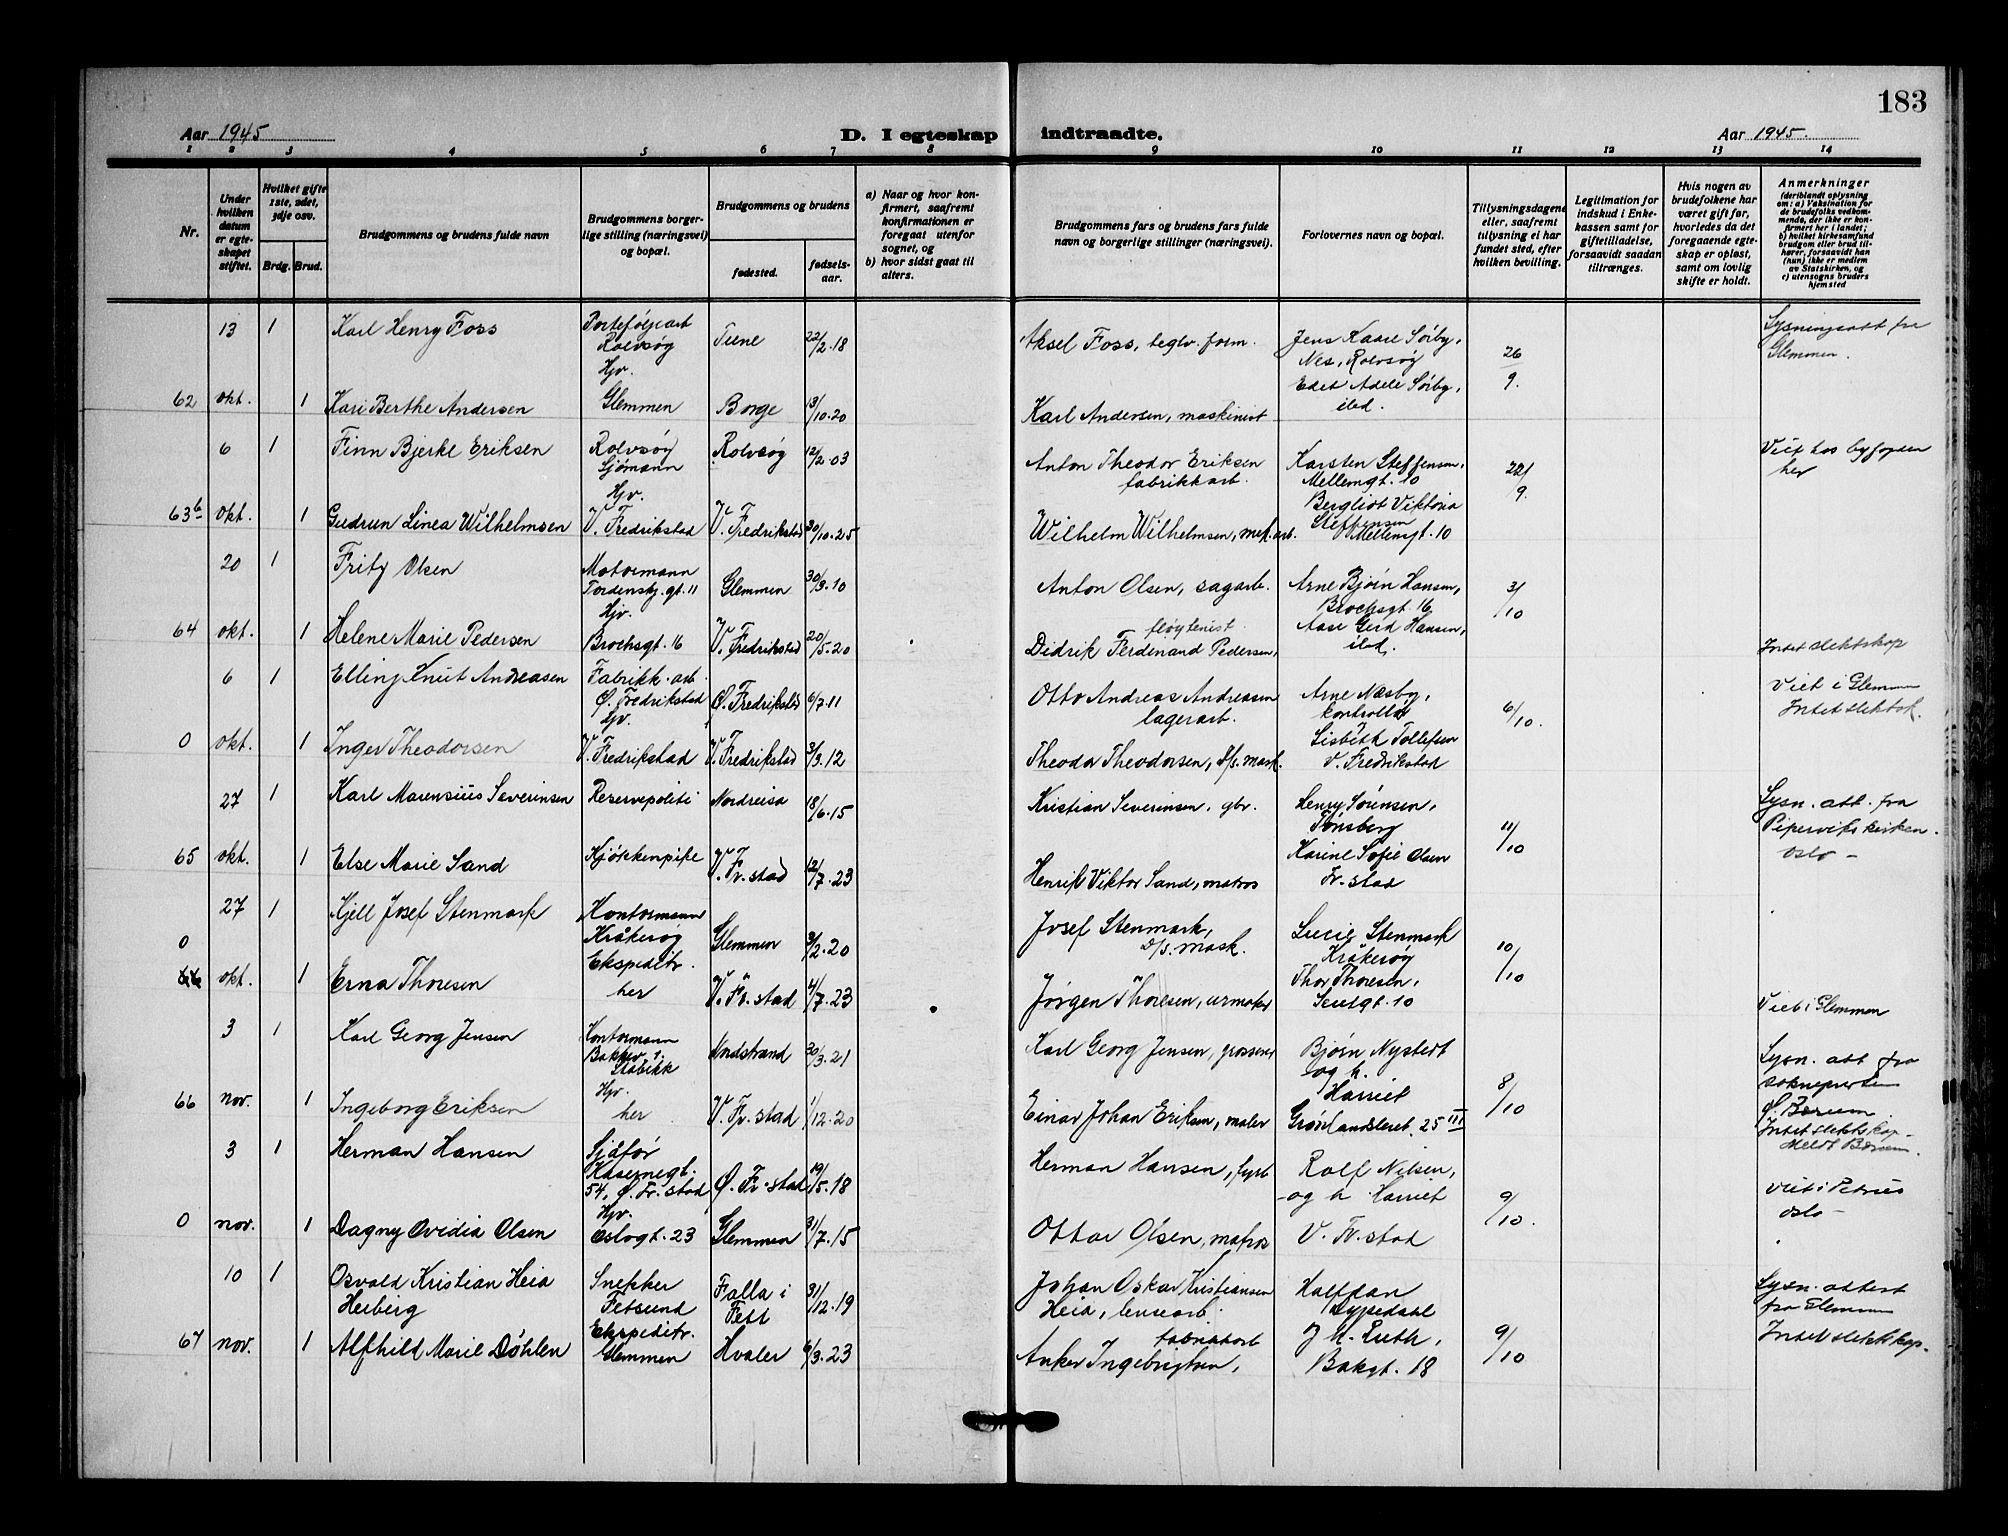 183
Aar 1945
D. I egteskap indtraadte.
Aar 1945.
1 2 3 4 5 6 7 8 9 10 11 12 13 14
Nr.
Under hvilken datum er egteskapet stiftet.
Hvilket gifte 1ste, 2det, 3dje osv.
Brdg. Brud.
Brudgommens og brudens fulde navn
Brudgommens borgerlige stilling (næringsvei) og bopæl.
Brudgommens og brudens
fødested.
fødselsaar.
a) Naar og hvor konfirmert, saafremt konfirmationen er foregaat utenfor sognet, og
b) hvor sidst gaat til alters.
Brudgommens fars og brudens fars fulde navn og borgerlige stillinger (næringsvei).
Forlovernes navn og bopæl.
Tillysningsdagene eller, saafremt tillysning ei har fundet sted, efter hvilken bevilling.
Legitimation for indskud i Enkekassen samt for giftetilladelse, forsaavidt saadan tiltrænges.
Hvis nogen av brudefolkene har været gift før, hvorledes da det foregaaende egteskap er opløst, samt om lovlig skifte er holdt.
Anmerkninger (deriblandt oplysning om: a) Vaksination for de brudefolks vedkommende, der ikke er konfirmert her i landet; b) hvilket kirkesamfund brudgom eller brud tilhører, forsaavidt han (hun) ikke er medlem av Statskirken, og c) utensogns bruders hjemsted
13 1 Karl Henry Foss Porteføljearb Rolvsøg Tune 22/2.18 Aksel Foss, teglv. form. Jens Kaare Sørby, Nes, Rolvsøg 26/9. Lysningsatt fra Glemmen.
62 okt. 1 Kari Berthe Andersen Hjv. Glemmen Borge 13/10.20 Karl Andersen, maskinist Edet Adele Sørby, ibd.
6 1 Finn Bjerke Eriksen Rolvsøg Sjømann Rolvsøg 12/2.03 Anton Theodor Eriksen fabrikkarb. Karsten Steffensen, Mellemgt. 10 /9. Viet hos byfogden her
63b okt. 1 Gudrun Linea Wilhelmsen Hjv. V. Fredrikstad V. Fredrikstad 30/10.25 Wilhelm Wilhelmsen, mek. arb. Bergliot Viktoria Steffensen Mellemgt. 10
20 1 Fritz Olsen Motormann Tordenskj. gt. 11 Glemmen 30/3.10 Anton Olsen, sagarb. Arne Bjørn Hansen, Brochsgt 16 3/10
64 okt. 1 Helene Marie Pedersen Hjv. Brochsgt. 16 V. Fredrikstad 20/5.20 Didrik Ferdinand Pedersen, fløytenist Aase Gerd Hansen, ibd. Intet slektskap
6 1 Elling Knut Andreasen Fabrikk. arb. Ø. Fredrikstad Ø. Fredrikstad 6/7.11 Otto Andreas Andreasen lagerarb. Arne Næsby, kontrollør 6/10. Viet i Glemmen Intet slektsk.
0 okt. 1 Inger Theodorsen Hjv. V. Fredrikstad V. Fredrikstad 3/3.12 Theodor Theodorsen, d/s. mask. Lisbeth Tollefsen V. Fredrikstad
27 1 Karl Marensius Severinsen Reservepoliti Nordreisa 18/6.15 Kristian Severinsen, gbr. Henry Sørensen, Tønsberg 11/10 Lysn. att. fra Pipervikskirken. Oslo -
65 okt. 1 Else Marie Sand Kjøkkenpike V. Fr. stad 12/7.23 Henrik Viktor Sand, matros Karine Sofie Olsen Fr. stad
27 1 Kjell Josef Stenmark Kontormann Kråkerøg Glemmen 3/2.20 Josef Stenmark, d/s. mask. Lucie Stenmark Kråkerøg 10/10
0 66 okt. 1 Erna Thoresen Ekspeditr. her V. Fr. stad 4/7.23 Jørgen Thoresen, urmaker Thor Thoresen, 10 Viet i Glemmen
3 1 Karl Georg Jensen Kontormann Stabekk Nordstrand 30/3.21 Karl Georg Jensen, grosserer Bjørn Nystedt og h. 8/10 Lysn. att fra soknepresten
66 nov. 1 Ingeborg Eriksen Hjv. her V. Fr. stad 1/12.20 Einar Johan Eriksen, maler Harriet Grønlandsleret. 25 III Ø. Bærum. Intet slektskap - Meldt Bærum.
3 1 Herman Hansen Sjåfør Kasernegt. 54, Ø. Fr. stad Ø. Fr. stad 19/5.18 Herman Hansen, fyrb Rolf Nilsen, og h Harriet 9/10. Viet i Petrus Oslo -
0 nov. 1 Dagny Ovidia Olsen Hjv. Oslogt. 23 Glemmen 31/7.15 Ottar Olsen, matros V. Fr. stad
10 1 Osvald Kristian Heia Heiberg Snekker Fetsund Falla i Fett 31/12.19 Johan Oskar Kristiansen Heia, lensearb. Halfdan 9/10 Lysn. attest fra Glemmen
67 nov. 1 Alfhild Marie Døhlen Ekspeditr. Glemmen Hvaler 6/3.23 Anker Ingebrigtsen, fabrikarb J. H. Luth, Bakgt. 18 Intet slektskap.